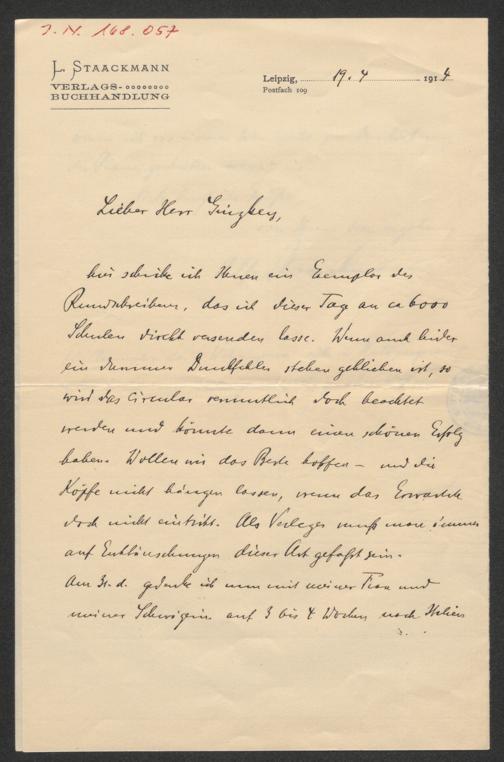 J. N. 168.057
L. STAACKMANN
VERLAGS-
BUCHHANDLUNG
Leipzig, 19. 4 1914
Postfach 109
Lieber Herr Ginzkey,
hier schicke ich Ihnen ein Exemplar des
Rundschreibens, das ich dieser Tage an ca 6000
Schulen direkt versenden lasse. Wenn auch leider
ein dummer Druckfehler stehen geblieben ist, so
wird das Circular vermutlich doch beachtet
werden und könnte dann einen schönen Erfolg
haben. Wollen wir das Beste hoffen – und die
Köpfe nicht hängen lassen, wenn das Erwartete
doch nicht eintritt. Als Verleger muß man immer
auf Enttäuschungen dieser Art gefaßt sein.
Am gedenke ich nun mit meiner Frau und
meiner Schwägerin auf 3 bis 4 Wochen nach Italien